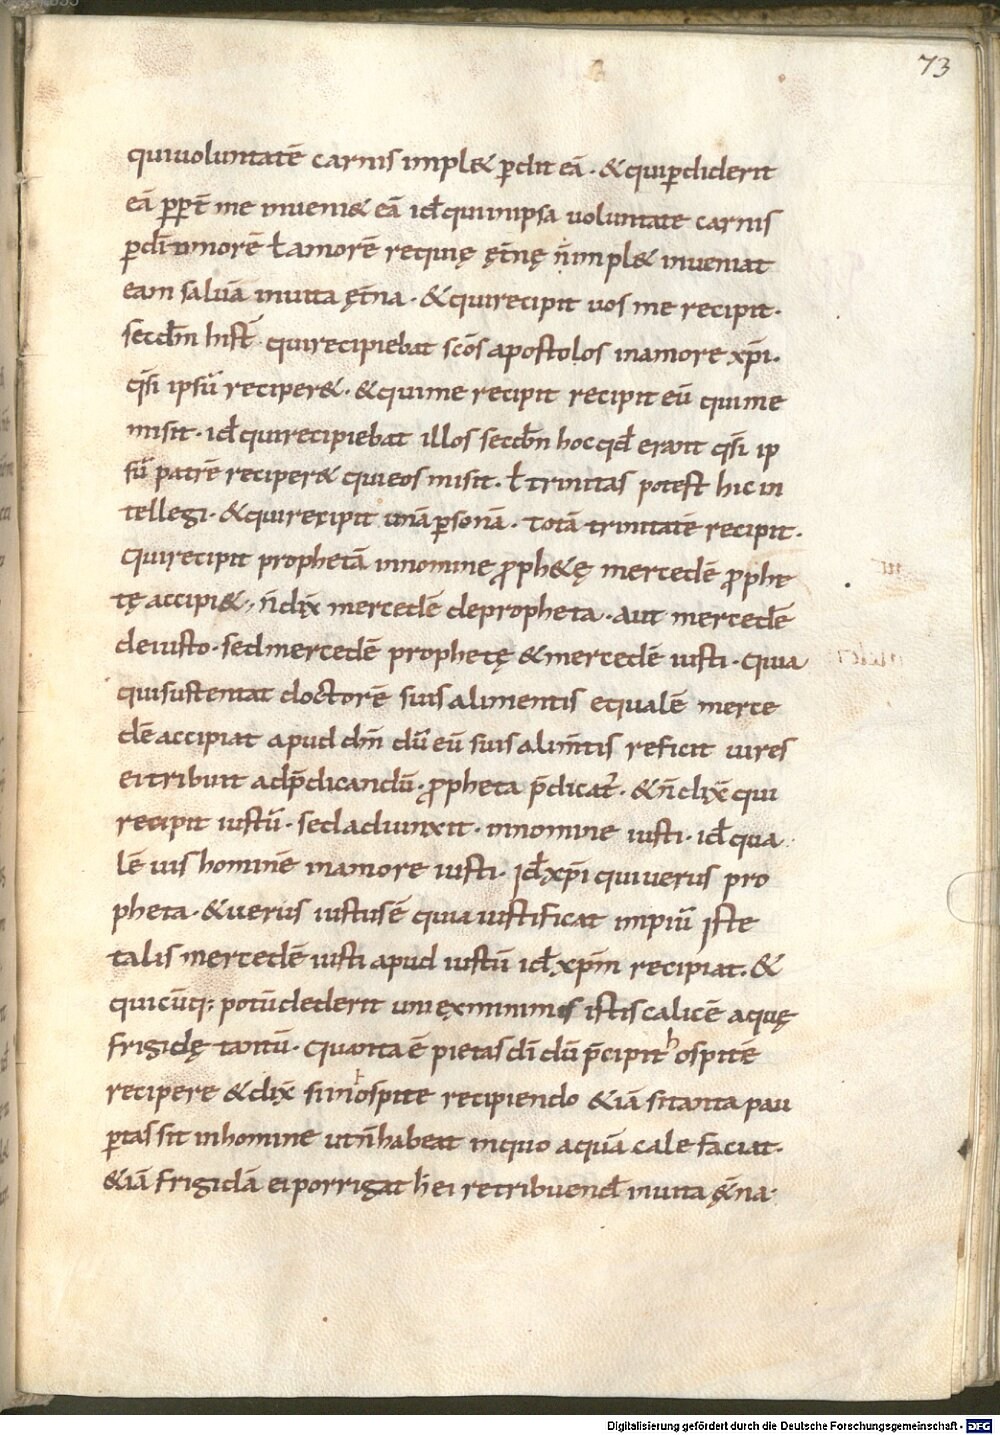 73
quiuoluntatē carnis impl& ꝑdit eā · & quiꝑdiderit
eā ꝓpt̄ me inueni& eā id̄ quiinipsa uoluntate carnis
ꝑdit̄ amorē ł amorē requię ęt̄nę n̄impl& inueniat
eam saluā inuita ęt̄na · & quirecipit uos me recipit ·
secdm̄ hist̄ · quirecipiebat sc̄os apostolos inamore xp̄i ·
q̄si ipsū reciper& · & quime recipit recipit eū quime
misit · id̄ quirecipiebat illos secdm̄ hoc qd̄ erant q̄si ip
sū patrē reciper& quieos misit · ł trinitas potest hic in
tellegi · & quirecipit unāꝑsonā · totā trinitatē recipit ·
quirecipit prophetā innomine ꝓph&ę mercedē ꝓphe
tę accipi& , n̄dix̄ mercedē depropheta · aut mercedē
deiusto · sedmercedē prophetę & mercedē iusti · quia
quisustentat doctorē suis alimentis equalē merce
dē accipiat apud dm̄ dū eū suis alim̄tis reficit uires
ei tribuit adp̄dicandū · ꝓpheta p̄dicat̄ · & n̄ dix̄ qui
recipit iustū · sed adiunxit · innomine iusti · id̄ qua
lē uis hominē inamore iusti · id̄ xp̄i qui uerus pro
pheta · & uerus iustus ē quia iustificat impiū iste
talis mercedē iusti apud iustū id̄ xp̄m recipiat · &
quicūq; potū dederit uni exminimis istis calicē aquę
frigidę tantū · quanta ē pietas dī dū p̄cipit hospitē
recipere & dix̄ sim hospite recipiendo & iā si tanta pau
ꝑtas sit inhomine ut n̄ habeat inquo aquā calefaciat ·
& iā frigidā ei porrigat h̄ ei retribuend̄ inuita ęt̄na ·
Digitalisierung gefördert durch die Deutsche Forschungsgemeinschaft - DFG